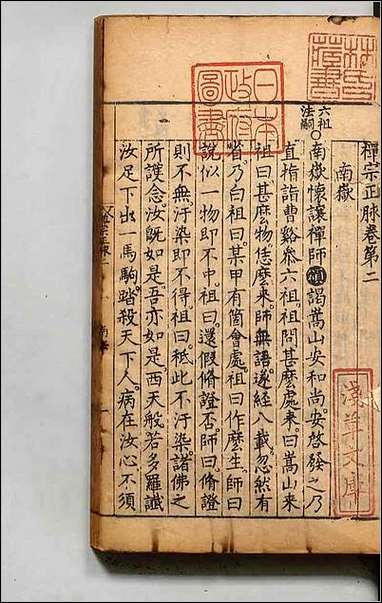 禪宗正脉卷第二
南嶽
六祖
法嗣
○南嶽懷讓禪師謁嵩山安和尚。安啓發之。乃
直指詣曹谿叅六祖。祖問甚麼處來。曰嵩山來
祖曰甚麼物恁麼來。師無語。遂經八載。忽然有
省。乃白祖曰。某甲有箇會處。祖曰作麼生。師曰
說似一物即不中。祖曰。還假脩證否。師曰。脩證
則不無。汙染即不得。祖曰。秖此不汙染。諸佛之
所護念。汝既如是。吾亦如是。西天般若多羅讖
汝足下出一馬駒。踏殺天下人。病在汝心。不須
林氏
藏書
日本
政府
圖書
淺草文庫
一